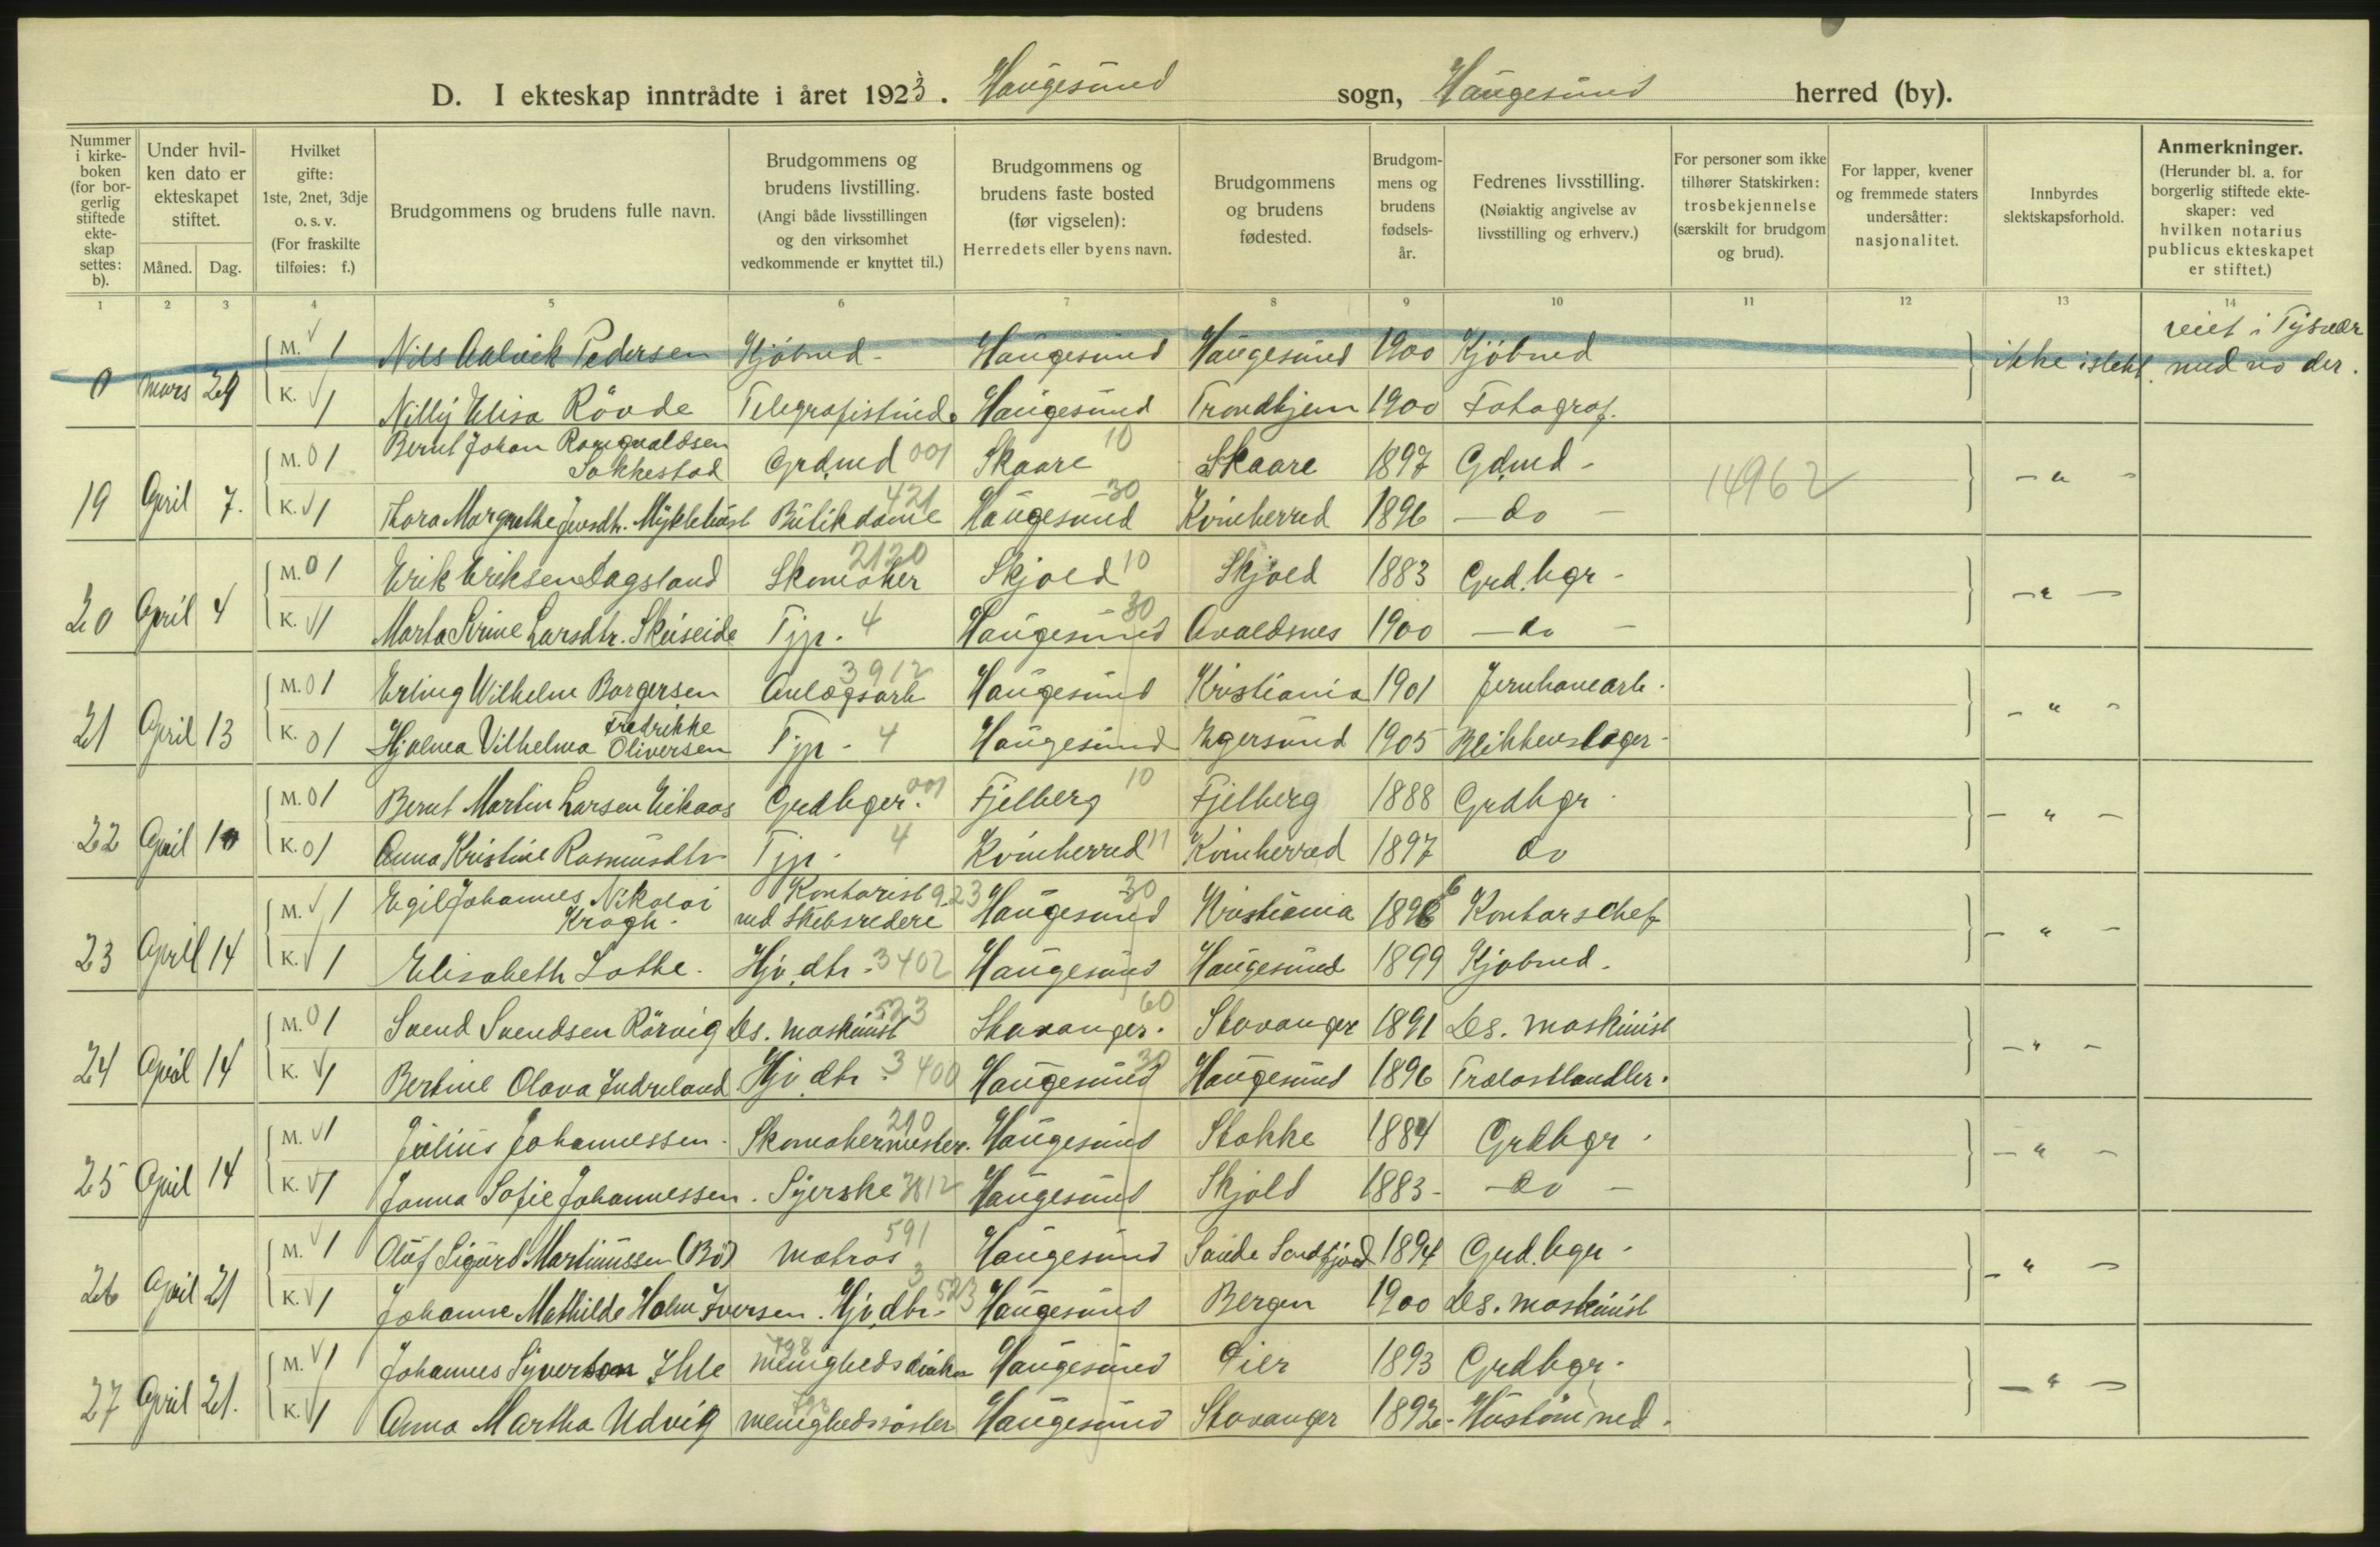 D. I ekteskap inntrådte i året 1923. Haugesund sogn, Haugesund herred (by).
Nummer i kirke-boken (for bor-gerlig stiftede ekte-skap settes: b).
Under hvil-ken dato er ekteskapet stiftet.
Måned. Dag.
Hvilket gifte: 1ste, 2net, 3dje o. s. v. (For fraskilte tilføies: f.)
Brudgommens og brudens fulle navn.
Brudgommens og brudens livstilling. (Angi både livsstillingen og den virksomhet vedkommende er knyttet til.)
Brudgommens og brudens faste bosted (før vigselen): Herredets eller byens navn.
Brudgommens og brudens fødested.
Brudgom-mens og brudens fødsels-år.
Fedrenes livsstilling. (Nøiaktig angivelse av livsstilling og erhverv.)
For personer som ikke tilhører Statskirken: trosbekjennelse (særskilt for brudgom og brud).
For lapper, kvener og fremmede staters undersåtter: nasjonalitet.
Innbyrdes slektskapsforhold.
Anmerkninger. (Herunder bl. a. for borgerlig stiftede ekte-skaper: ved hvilken notarius publicus ekteskapet er stiftet.)
1 2 3 4 5 6 7 8 9 10 11 12 13 14
0 mars 29 M. 1 Nils Aalvik Pedersen Kjøbmd - Haugesund Haugesund 1900 Kjøbmd ikke i slekt. viet i Tysvær med no der.
K. 1 Nilly Elisa Røvde Telegrafistind. Haugesund Trondhjem 1900 Fotograf.
19 April 7. M. 0 1 Bernt Johan Rangvaldsen Sokkestad Grdmd 001 Skaare 10 Skaare 1897 Gdmd - 14962 - " -
K. 1 Thora Margrethe Jensdtr. Myklebust Butikdame 421 Haugesund 30 Kvinherred 1896 - do -
20 April 4 M. 0 1 Erik Eriksen Dagsland Skomaker 2120 Skjold 10 Skjold 1883 Grd.bgr - - " -
K. 1 Marta Serine Larsdtr. Skeiseide Tjp. 4 Haugesund 30 Avaldsnes 1900 - do -
21 April 13 M. 0 1 Erling Wilhelm Borgersen Anlægsarb 3912 Haugesund Kristiania 1901 Jernbanearb. - " -
K. 0 1 Hjalma Vilhelma Fredrikke Oliversen Tjp - 4 Haugesund Egersund 1905 Blikkenslager -
22 April 10 M. 0 1 Bernt Martin Larsen Eikaas Grdbger. 001 Fjelberg 10 Fjelberg 1888 Grdbgr. - " -
K. 0 1 Anna Kristine Rasmusdtr Tjp. 4 Kvinherred 11 Kvinherred 1897 do
23 April 14 M. 1 Egil Johannes Nikolai Krogh. Kontorist 923 ved Skibsredere Haugesund 30 Kristiania 1896 Kontorschef - " -
K. 1 Elisabeth Lothe. Hjv. dtr. 3402 Haugesund Haugesund 1899 Kjøbmd.
24 April 14 M. 0 1 Svend Svendsen Rørvig Ds. maskinist 523 Stavanger. 60 Stavanger 1891 Ds. maskinist - " -
K. 1 Bertine Olava Indreland Hjv dtr. 3400 Haugesund 30 Haugesund 1896 Trælasthandler.
25 April 14 M. 1 Julius Johannessen. Skomakermester. 210 Haugesund Stokke 1884 Grdbgr. - " -
K. 1 Janna Sofie Johannessen. Syerske 3812 Haugesund Skjold 1883 - - do -
26 April 21 M. 1 Oluf Sigurd Martinussen (Bø) Matros 591 Haugesund Sande Sundfjord 1894 Grd.bgr - - " -
K. 1 Johanne Mathilde Holm Iversen. Hjv.dtr. 3523 Haugesund Bergen 1900 Ds. maskinist
27 April 21. M. 1 Johannes Syvertson Ihle menighedsdiakon 798 Haugesund Øier 1893 Grdbgr. - " -
K. 1 Anna Martha Udvig menighedssøster 798 Haugesund Stavanger 1892 -